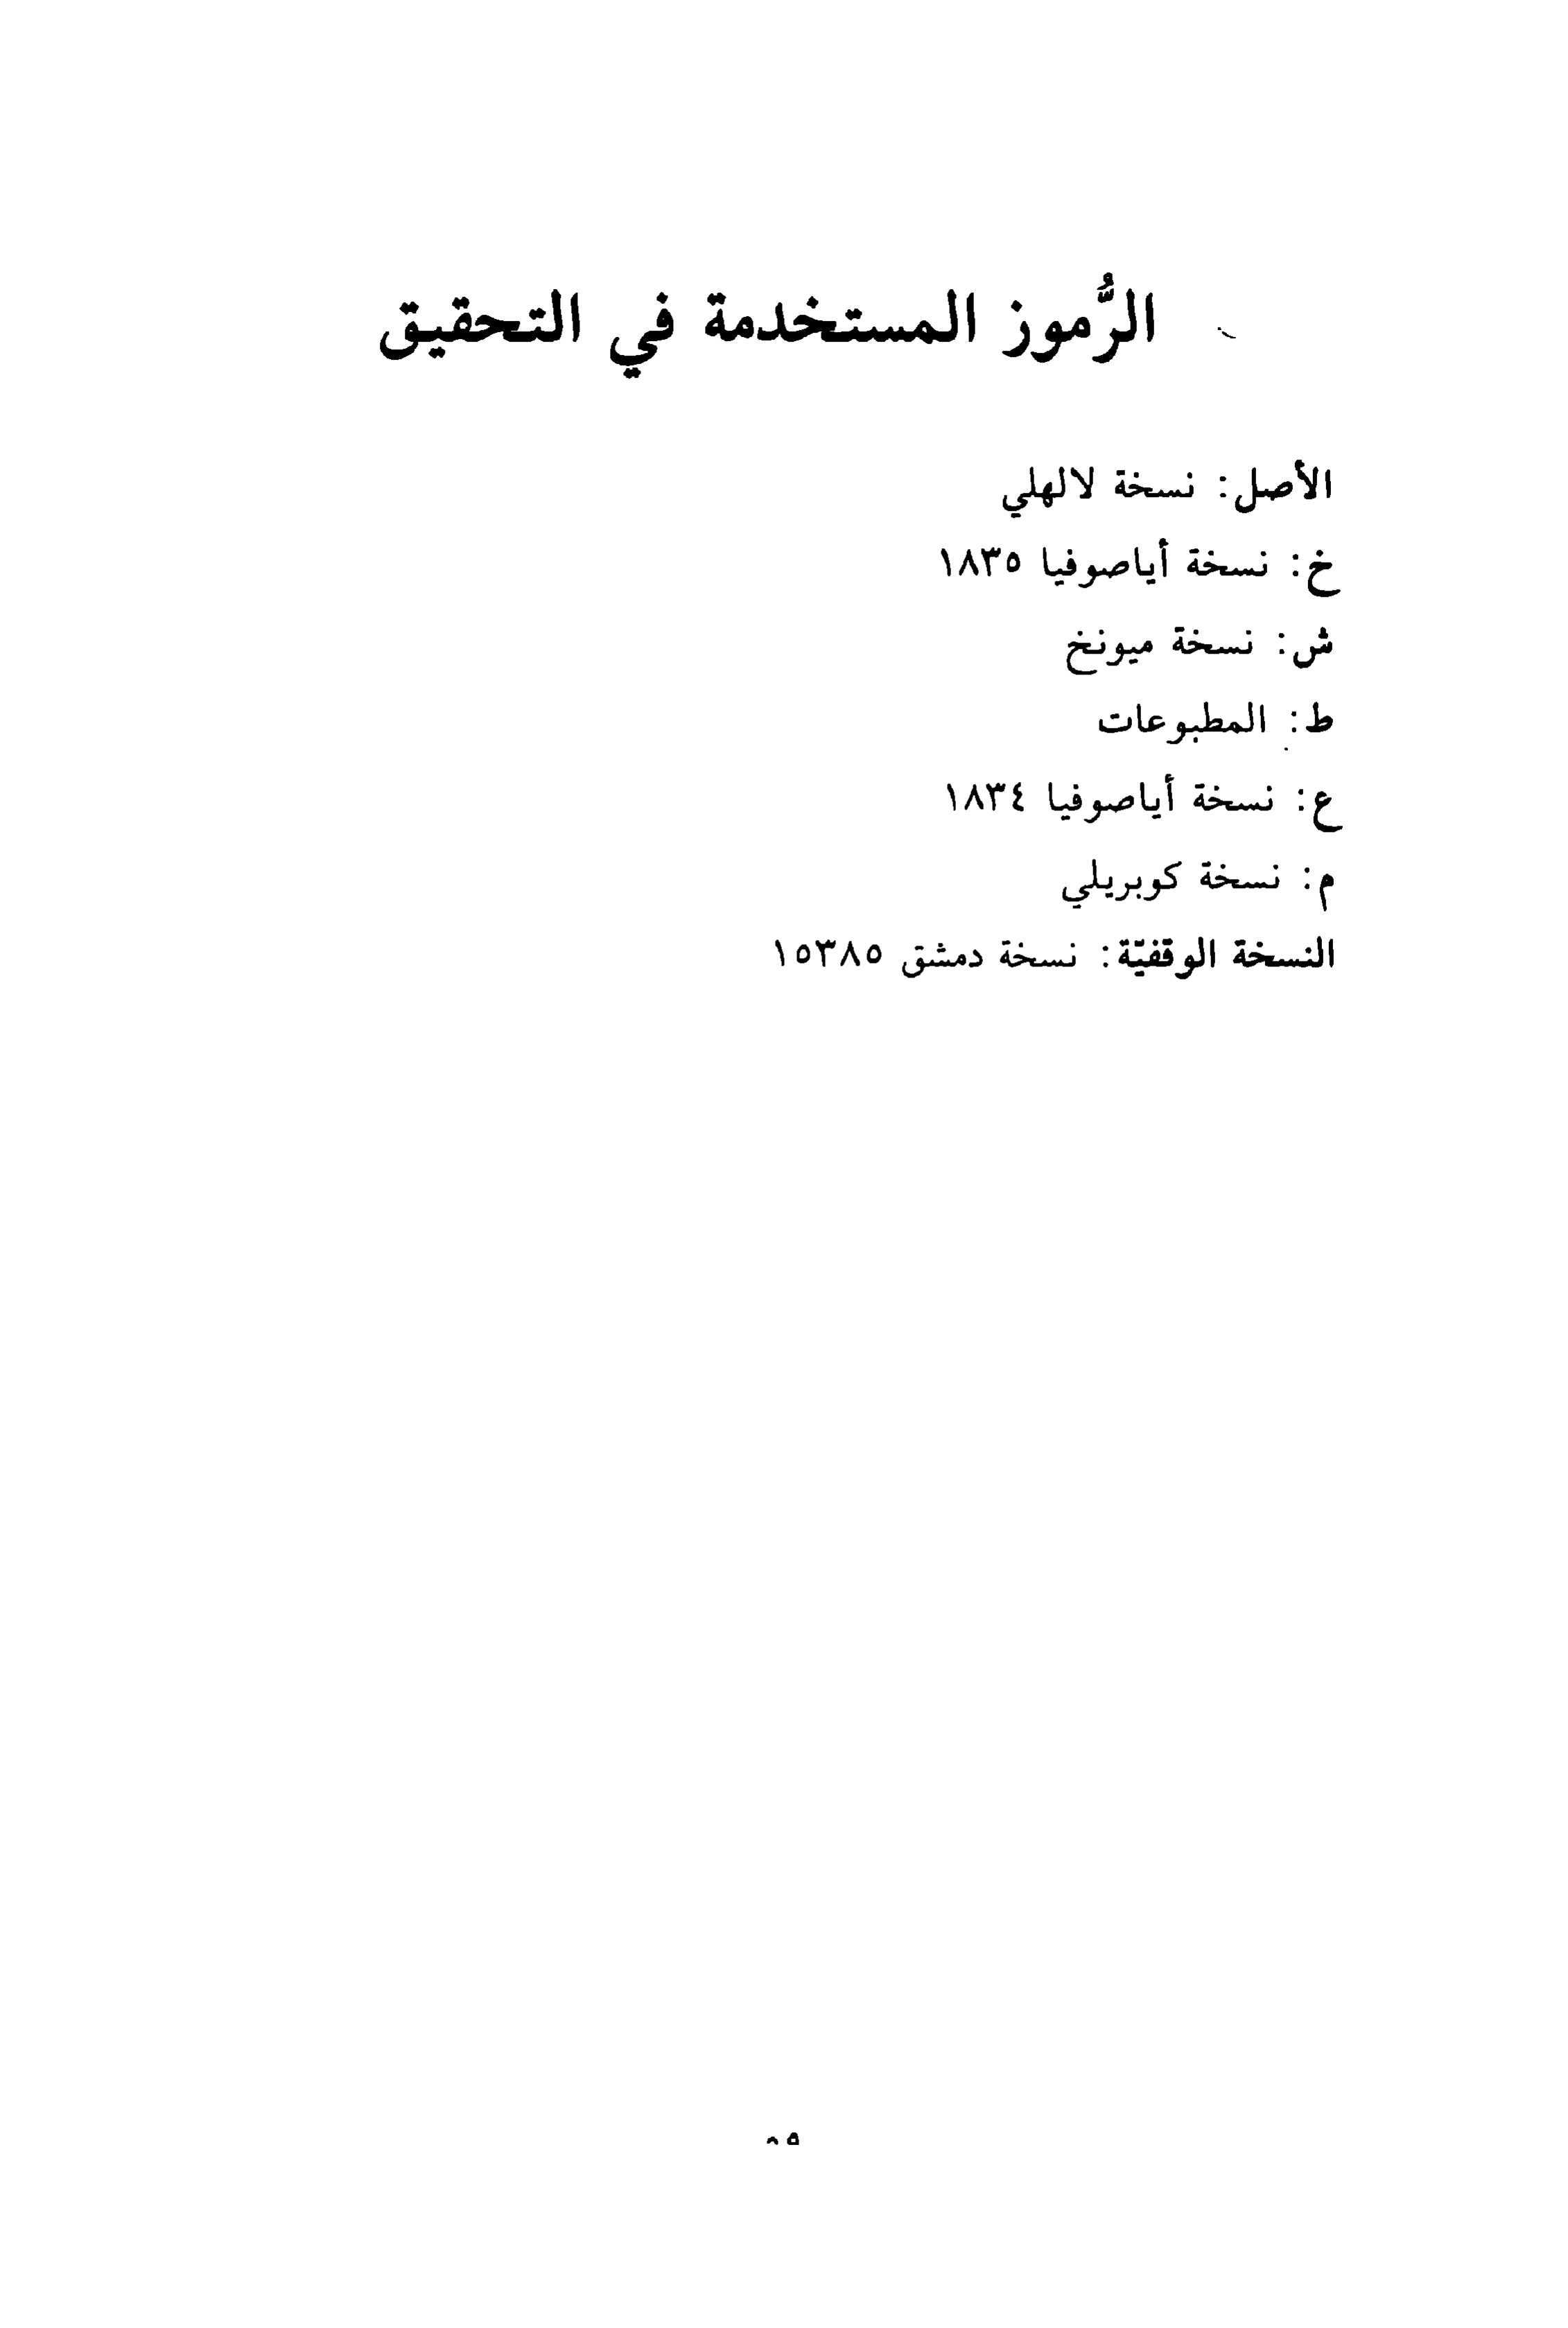 الرُّموز المستخدمة في التحقيق
الأصل: نسخة لالهلي
خ: نسخة أياصوفيا ١٨٣٥
ش: نسخة ميونخ
ط: المطبوعات
ع: نسخة أياصوفيا ١٨٣٤
م: نسخة كوبريلي
النسخة الوقفيّة: نسخة دمشق ١٥٣٨٥